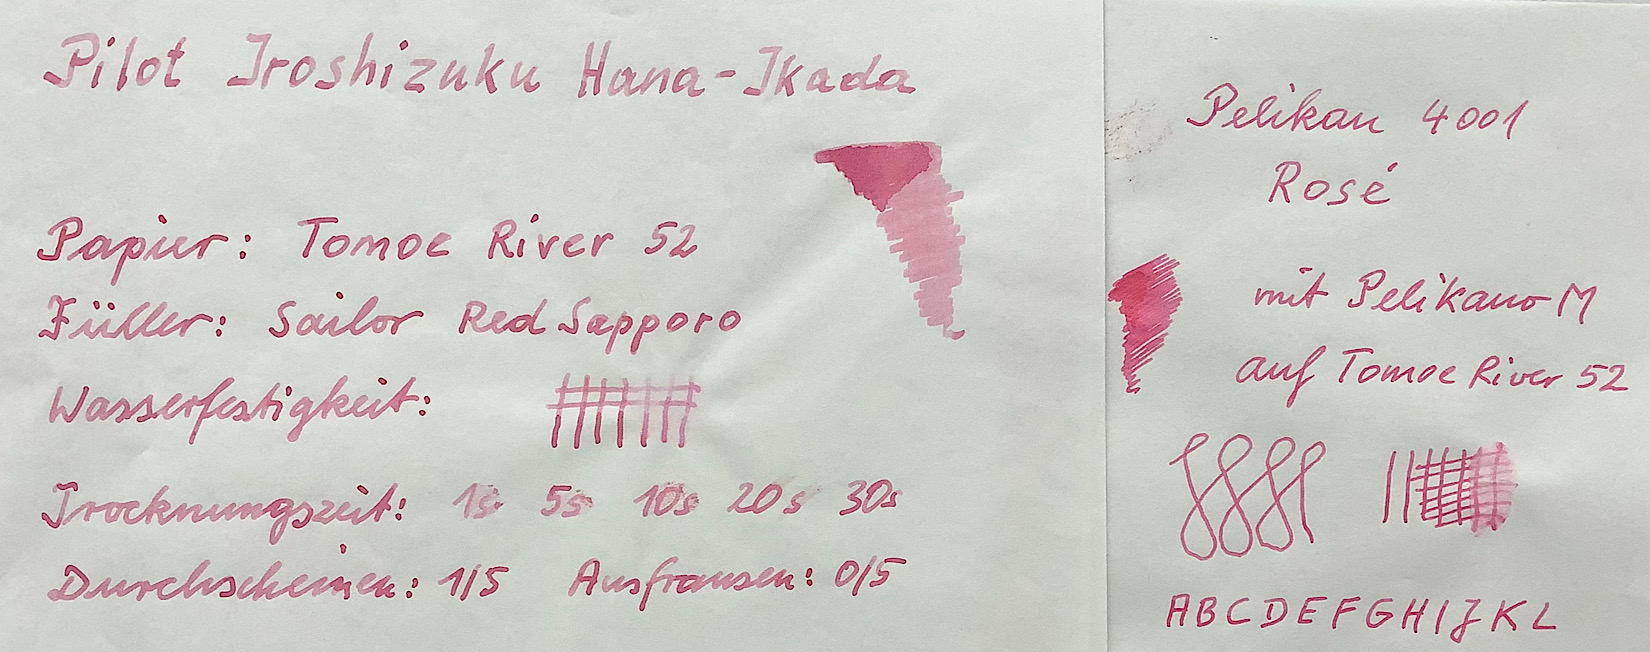 Pilot Iroshizuku Hana-Ikada
Papier: Tomoe River 52
Füller: Sailor Red Sapporo
Wasserfestigkeit:
Trocknungszeit: 1s 5s 10s 20s 30s
Durchscheinen: 1/5 Ausfransen: 0/5
Pelikan 4001
Rosé
mit Pelikano M
auf Tomoe River 52
ABCDEFGHIJKL